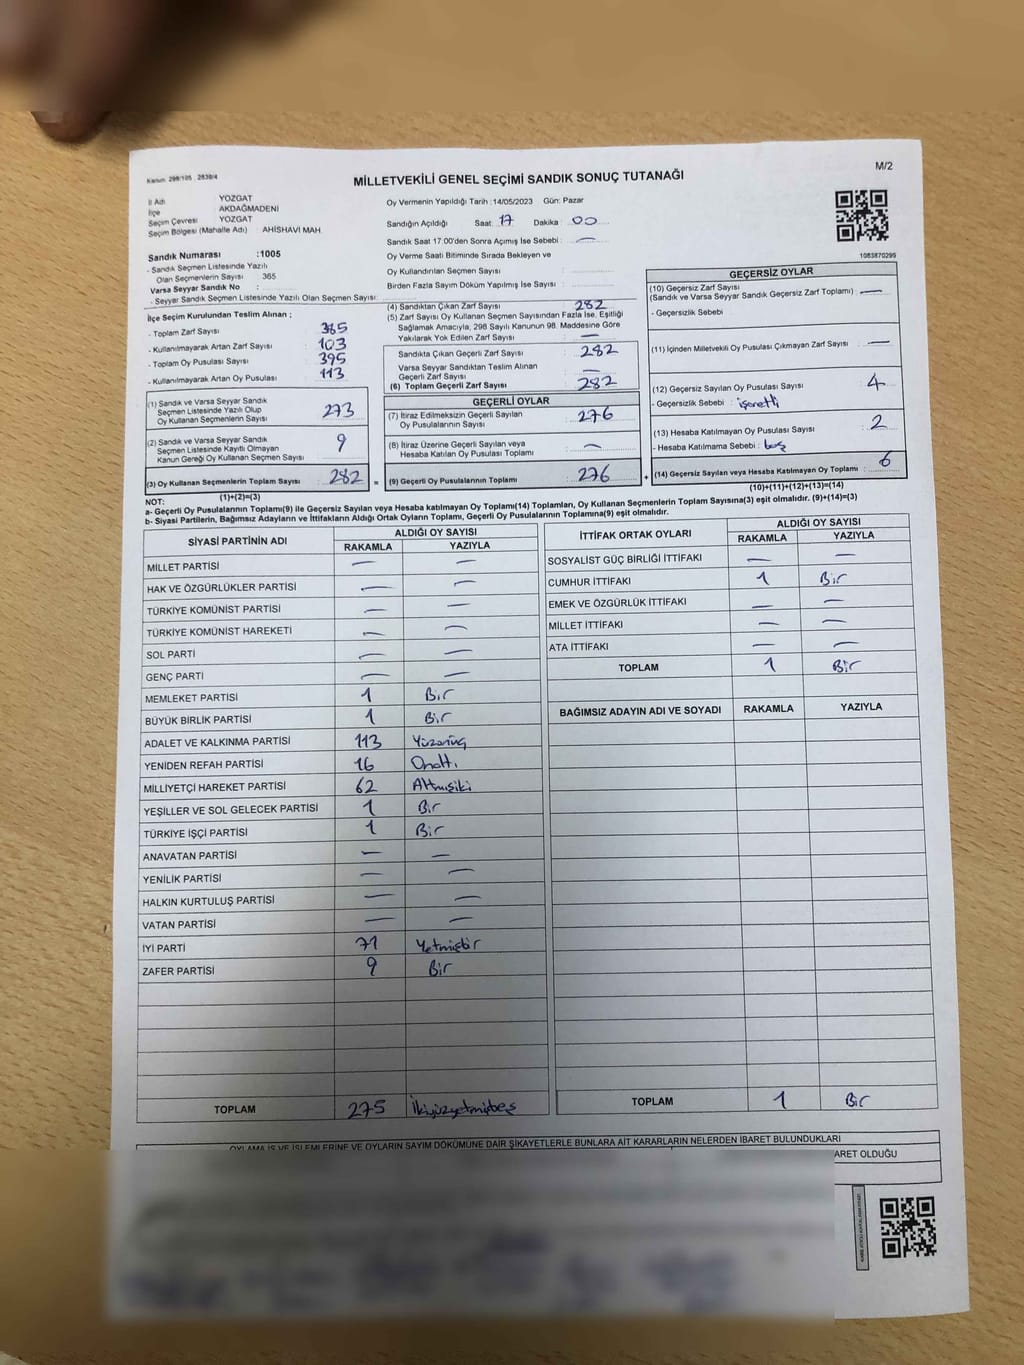 Kanun 298/105 , 2839/4
M/2
MİLLETVEKİLİ GENEL SEÇİMİ SANDIK SONUÇ TUTANAĞI
İl Adı YOZGAT
İlçe AKDAĞMADENİ
Seçim Çevresi YOZGAT
Seçim Bölgesi (Mahalle Adı) : AHİSHAVİ MAH.
Sandık Numarası :1005
- Sandık Seçmen Listesinde Yazılı
Olan Seçmenlerin Sayısı : 365
Varsa Seyyar Sandık No :
- Seyyar Sandık Seçmen Listesinde Yazılı Olan Seçmen Sayısı:
Oy Vermenin Yapıldığı Tarih :14/05/2023 Gün: Pazar
Sandığın Açıldığı Saat: 17 Dakika : 00
Sandık Saat 17:00'den Sonra Açımış İse Sebebi : —
Oy Verme Saati Bitiminde Sırada Bekleyen ve
Oy Kullandırılan Seçmen Sayısı :
Birden Fazla Sayım Döküm Yapılmış İse Sayısı :
1083870295
İlçe Seçim Kurulundan Teslim Alınan :
- Toplam Zarf Sayısı : 385
- Kullanılmayarak Artan Zarf Sayısı : 103
- Toplam Oy Pusulası Sayısı : 395
- Kullanılmayarak Artan Oy Pusulası : 113
(1) Sandık ve Varsa Seyyar Sandık
Seçmen Listesinde Yazılı Olup
Oy Kullanan Seçmenlerin Sayısı : 273
(2) Sandık ve Varsa Seyyar Sandık
Seçmen Listesinde Kayıtlı Olmayan
Kanun Gereği Oy Kullanan Seçmen Sayısı : 9
(3) Oy Kullanan Seçmenlerin Toplam Sayısı : 282
(1)+(2)=(3)
(4) Sandıktan Çıkan Zarf Sayısı : 282
(5) Zarf Sayısı Oy Kullanan Seçmen Sayısından Fazla İse, Eşitliği
Sağlamak Amacıyla, 298 Sayılı Kanunun 98. Maddesine Göre
Yakılarak Yok Edilen Zarf Sayısı : —
Sandıkta Çıkan Geçerli Zarf Sayısı : 282
Varsa Seyyar Sandıktan Teslim Alınan
Geçerli Zarf Sayısı : —
(6) Toplam Geçerli Zarf Sayısı : 282
GEÇERLİ OYLAR
(7) İtiraz Edilmeksizin Geçerli Sayılan
Oy Pusulalarının Sayısı : 276
(8) İtiraz Üzerine Geçerli Sayılan veya
Hesaba Katılan Oy Pusulası Toplamı : —
= (9) Geçerli Oy Pusulalarının Toplamı : 276
GEÇERSİZ OYLAR
(10) Geçersiz Zarf Sayısı
(Sandık ve Varsa Seyyar Sandık Geçersiz Zarf Toplamı) : —
- Geçersizlik Sebebi
(11) İçinden Milletvekili Oy Pusulası Çıkmayan Zarf Sayısı : —
(12) Geçersiz Sayılan Oy Pusulası Sayısı : 4
- Geçersizlik Sebebi : işaretli
(13) Hesaba Katılmayan Oy Pusulası Sayısı : 2
- Hesaba Katılmama Sebebi : boş
+ (14) Geçersiz Sayılan veya Hesaba Katılmayan Oy Toplamı : 6
(10)+(11)+(12)+(13)=(14)
NOT:
a- Geçerli Oy Pusulalarının Toplamı(9) ile Geçersiz Sayılan veya Hesaba katılmayan Oy Toplamı(14) Toplamları, Oy Kullanan Seçmenlerin Toplam Sayısına(3) eşit olmalıdır. (9)+(14)=(3)
b- Siyasi Partilerin, Bağımsız Adayların ve İttifakların Aldığı Ortak Oyların Toplamı, Geçerli Oy Pusulalarının Toplamına(9) eşit olmalıdır.
SİYASİ PARTİNİN ADI ALDIĞI OY SAYISI
RAKAMLA YAZIYLA
MİLLET PARTİSİ — —
HAK VE ÖZGÜRLÜKLER PARTİSİ — —
TÜRKİYE KOMÜNİST PARTİSİ — —
TÜRKİYE KOMÜNİST HAREKETİ — —
SOL PARTİ — —
GENÇ PARTİ — —
MEMLEKET PARTİSİ 1 Bir
BÜYÜK BİRLİK PARTİSİ 1 Bir
ADALET VE KALKINMA PARTİSİ 113 Yüzonüç
YENİDEN REFAH PARTİSİ 16 Onaltı
MİLLİYETÇİ HAREKET PARTİSİ 62 Altmışiki
YEŞİLLER VE SOL GELECEK PARTİSİ 1 Bir
TÜRKİYE İŞÇİ PARTİSİ 1 Bir
ANAVATAN PARTİSİ — —
YENİLİK PARTİSİ — —
HALKIN KURTULUŞ PARTİSİ — —
VATAN PARTİSİ — —
İYİ PARTİ 71 Yetmişbir
ZAFER PARTİSİ 9 Bir
TOPLAM 275 İkiyüzyetmişbeş
İTTİFAK ORTAK OYLARI ALDIĞI OY SAYISI
RAKAMLA YAZIYLA
SOSYALİST GÜÇ BİRLİĞİ İTTİFAKI — —
CUMHUR İTTİFAKI 1 Bir
EMEK VE ÖZGÜRLÜK İTTİFAKI — —
MİLLET İTTİFAKI — —
ATA İTTİFAKI — —
TOPLAM 1 Bir
BAĞIMSIZ ADAYIN ADI VE SOYADI RAKAMLA YAZIYLA
TOPLAM 1 Bir
OYLAMA İŞ VE İŞLEMLERİNE VE OYLARIN SAYIM DÖKÜMÜNE DAİR ŞİKAYETLERLE BUNLARA AİT KARARLARIN NELERDEN İBARET BULUNDUKLARI
ARET OLDUĞU